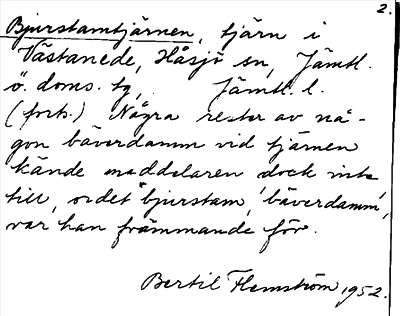 2.
Bjurstamtjärnen, tjärn i
Västanede, Håsjö sn, Jämtl.
ö. doms. tg, Jämtl. l.
(forts.) Några rester av nå-
gon bäverdamm vid tjärnen
kände meddelaren dock inte
till, ordet "bjurstam", 'bäverdamm',
var han främmande för.
Bertil Flemström 1952.